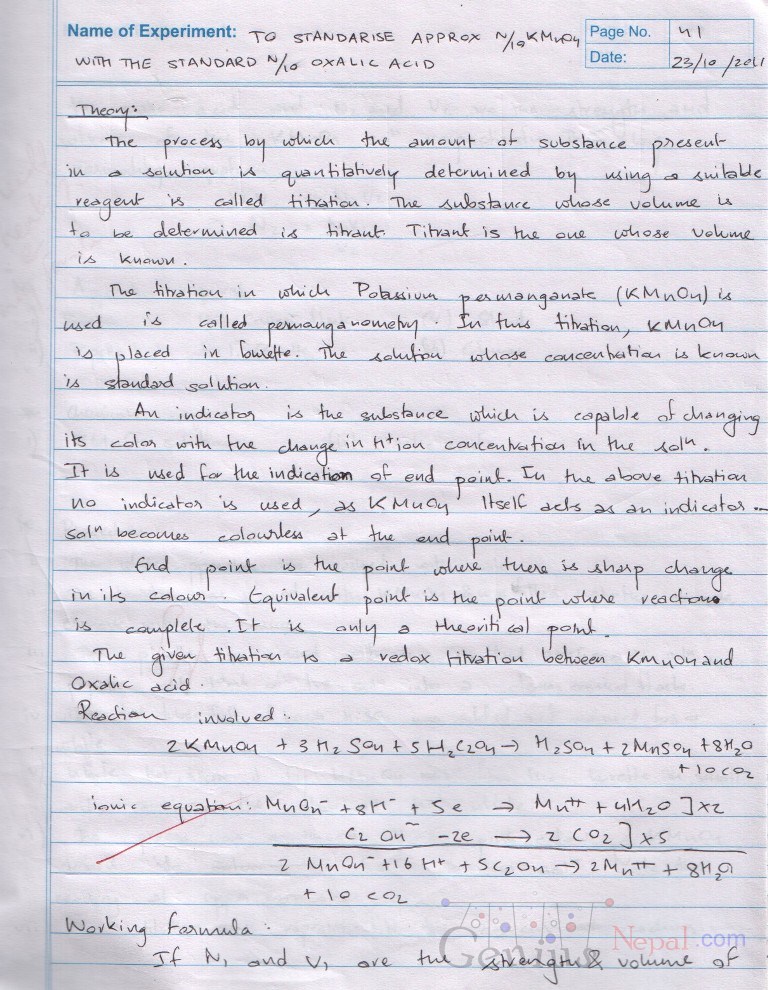 Name of Experiment: TO STANDARISE APPROX N/10 KMnO4
Page No. 41
WITH THE STANDARD N/10 OXALIC ACID
Date: 23/10/2011
Theory:
The process by which the amount of substance present
in a solution is quantitatively determined by using a suitable
reagent is called titration. The substance whose volume is
to be determined is titrant. Titrant is the one whose volume
is known.
The titration in which Potassium permanganate (KMnO4) is
used is called permanganometry. In this titration, KMnO4
is placed in burette. The solution whose concentration is known
is standard solution.
An indicator is the substance which is capable of changing
its color with the change in H+ ion concentration in the solⁿ.
It is used for the indication of end point. In the above titration
no indicator is used, as KMnO4 Itself acts as an indicator
solⁿ becomes colourless at the end point.
End point is the point where there is sharp change
in its colour. Equivalent point is the point where reaction
is complete. It is only a theoritical point.
The given titration is a redox titration between KMnO4 and
Oxalic acid.
Reaction involved:
2KMnO4 + 3H2SO4 + 5H2C2O4 → H2SO4 + 2MnSO4 + 8H2O
+ 10CO2
ionic equation: MnO4⁻ + 8H⁻ + 5e → Mn⁺⁺ + 4H2O ] x2
C2O4⁻⁻ -2e → 2CO2 ] x5
2 MnO4⁻ + 16H+ + 5C2O4 → 2Mn⁺⁺ + 8H2O
+ 10 CO2
Working formula:
If N1 and V1 are the strength & volume of
Genius Nepal.com